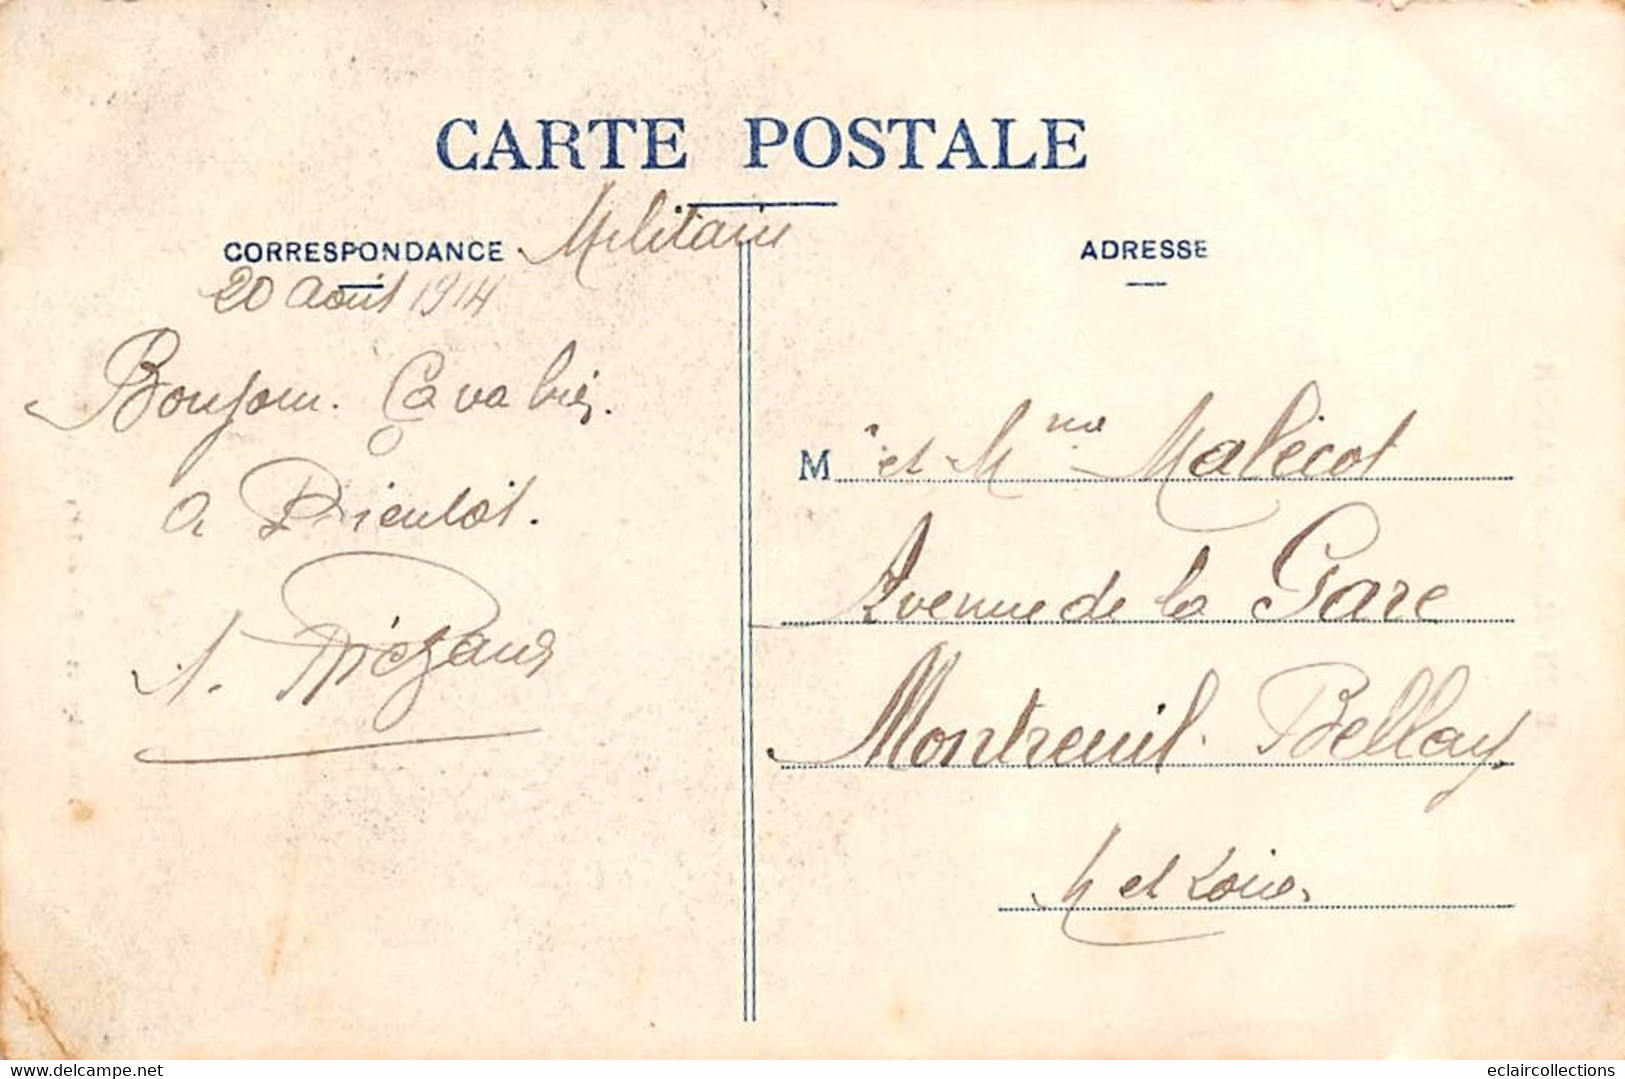 CARTE POSTALE
CORRESPONDANCE Militaire
ADRESSE
20 Août 1914
Bonjour. Cavalier.
a Bientôt.
A.
M et Mme Malécot
Avenue de la Gare
Montreuil. Bellay
M et Loire
delcampe.net
eclaircollections